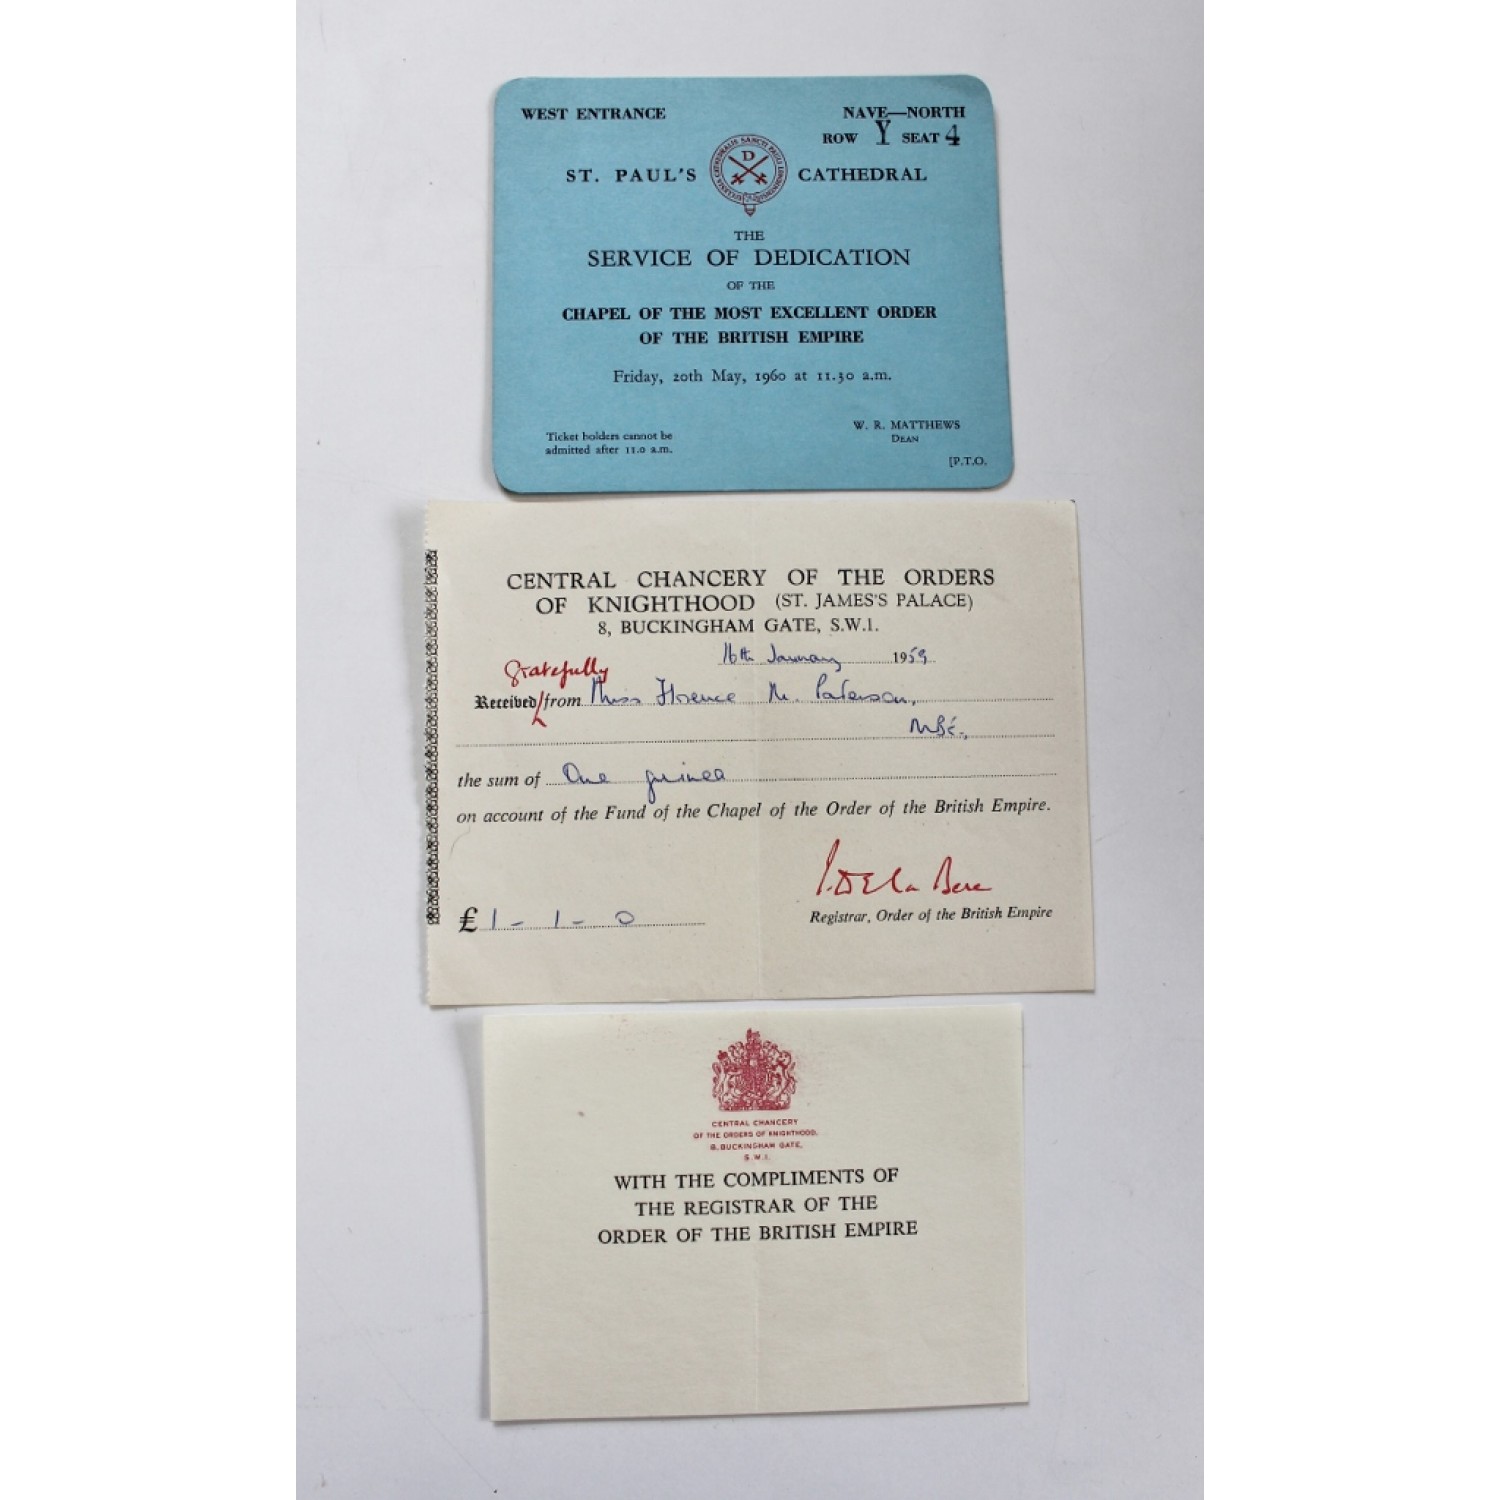 WEST ENTRANCE
NAVE—NORTH
ROW Y SEAT 4
ST. PAUL'S CATHEDRAL
D
THE
SERVICE OF DEDICATION
OF THE
CHAPEL OF THE MOST EXCELLENT ORDER
OF THE BRITISH EMPIRE
Friday, 20th May, 1960 at 11.30 a.m.
Ticket holders cannot be
admitted after 11.0 a.m.
W. R. MATTHEWS
DEAN
[P.T.O.
CENTRAL CHANCERY OF THE ORDERS
OF KNIGHTHOOD (ST. JAMES'S PALACE)
8, BUCKINGHAM GATE, S.W.1.
16th January 1959
gratefully
Received from Miss Florence M. Paterson,
MBE.,
the sum of One guinea
on account of the Fund of the Chapel of the Order of the British Empire.
I. De la Bere
£ 1 - 1 - 0
Registrar, Order of the British Empire
CENTRAL CHANCERY
OF THE ORDERS OF KNIGHTHOOD,
8, BUCKINGHAM GATE,
S.W.1.
WITH THE COMPLIMENTS OF
THE REGISTRAR OF THE
ORDER OF THE BRITISH EMPIRE